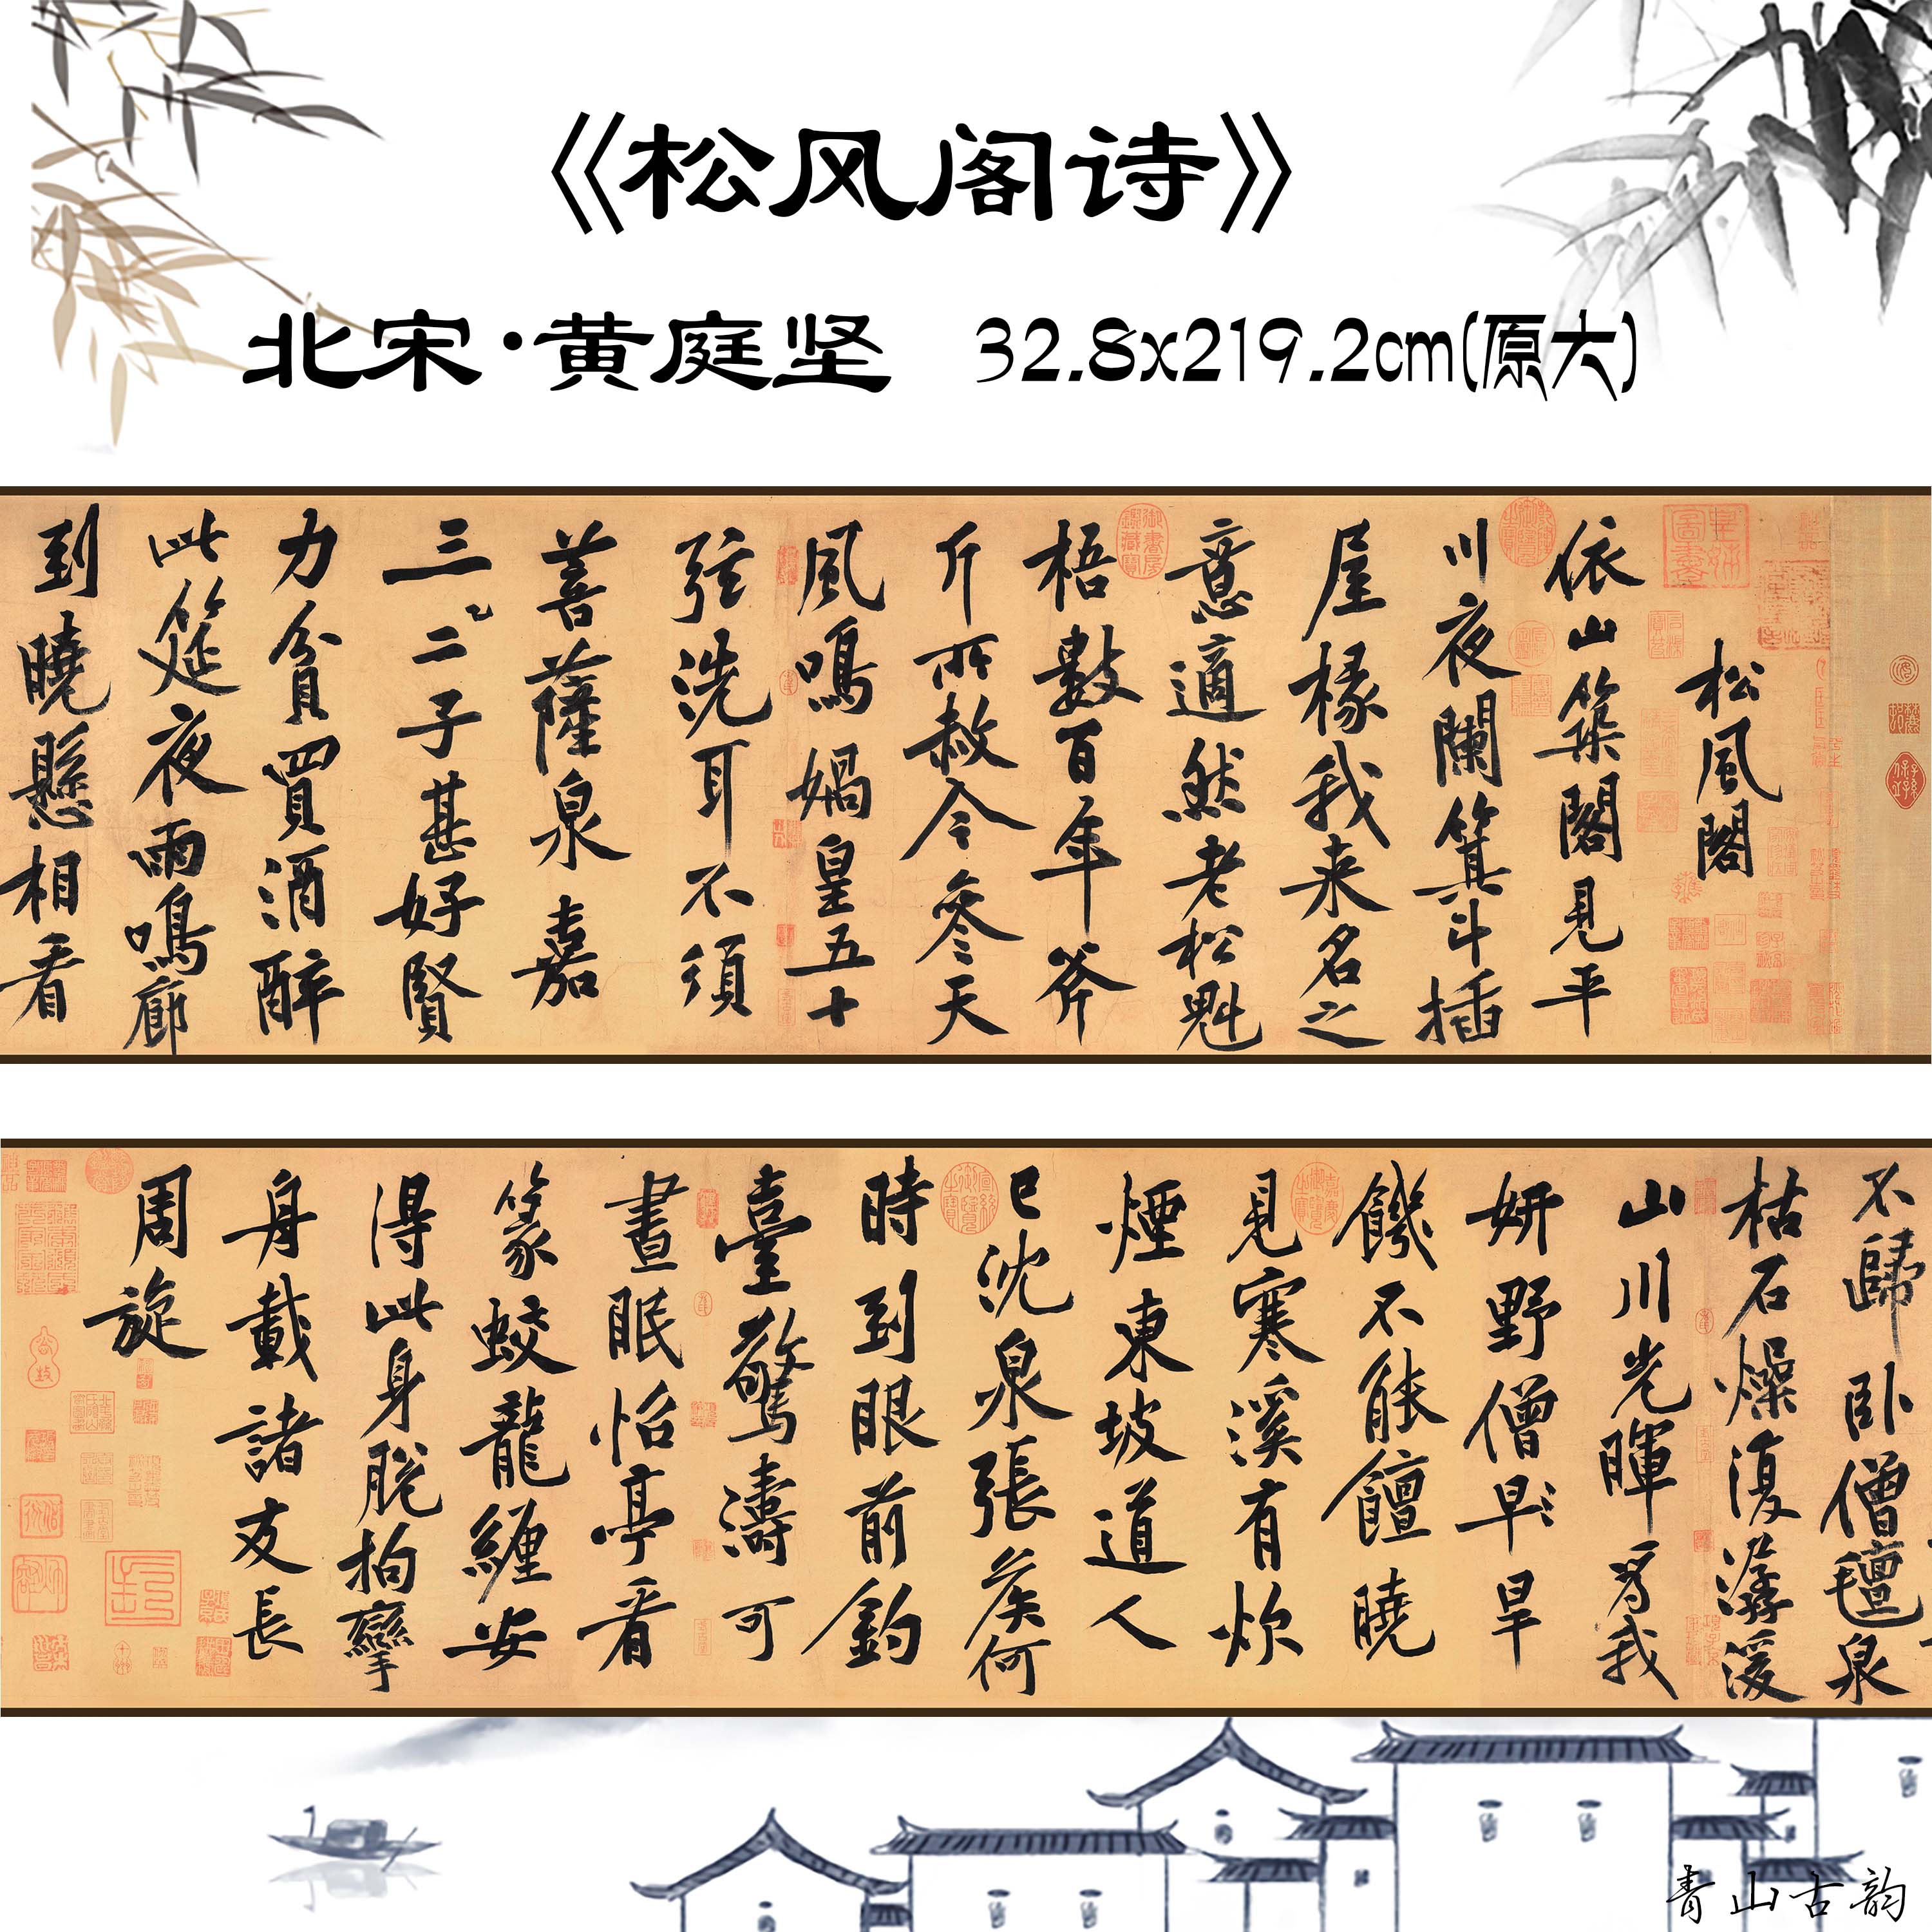 《松风阁诗》
北宋·黄庭坚 32.8x219.2cm(原大)
松風閣
依山築閣見平
川夜闌箕斗插
屋椽我来名之
意適然老松魁
梧數百年斧
斤所赦今参天
風鳴媧皇五十
弦洗耳不須
菩薩泉嘉
三〻二子甚好賢
力貧買酒醉
此筵夜雨鳴廊
到曉懸相看
不歸卧僧氊泉
枯石燥復潺湲
山川光暉為我
妍野僧早〻旱
饑不能饘曉
見寒溪有炊
煙東坡道人
已沈泉張侯何
時到眼前釣
臺驚濤可
晝眠怡亭看
篆蛟龍纏安
得此身脱拘攣
舟載諸友長
周旋
御書房鑑藏寶
青山古韵